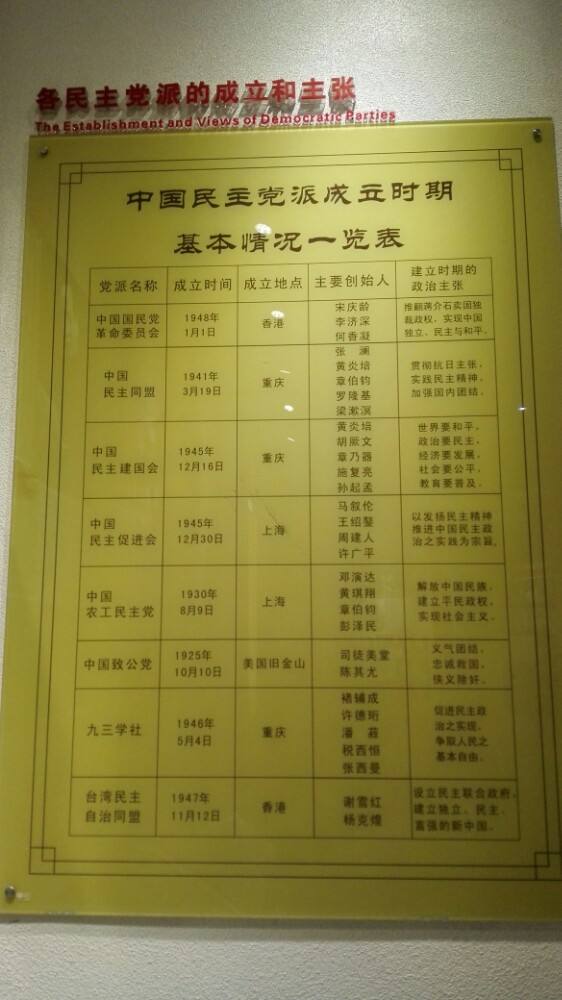 各民主党派的成立和主张
The Establishment and Views of Democratic Parties
中国民主党派成立时期
基本情况一览表
党派名称 成立时间 成立地点 主要创始人 建立时期的
政治主张
中国国民党
革命委员会
1948年
1月1日
香港
宋庆龄
李济深
何香凝
推翻蒋介石卖国独
裁政权，实现中国
独立、民主与和平。
中国
民主同盟
1941年
3月19日
重庆
张 澜
黄炎培
章伯钧
罗隆基
梁漱溟
贯彻抗日主张，
实践民主精神，
加强国内团结。
中国
民主建国会
1945年
12月16日
重庆
黄炎培
胡厥文
章乃器
施复亮
孙起孟
世界要和平，
政治要民主，
经济要发展，
社会要公平，
教育要普及。
中国
民主促进会
1945年
12月30日
上海
马叙伦
王绍鏊
周建人
许广平
以发扬民主精神
推进中国民主政
治之实践为宗旨。
中国
农工民主党
1930年
8月9日
上海
邓演达
黄琪翔
章伯钧
彭泽民
解放中国民族，
建立平民政权，
实现社会主义。
中国致公党
1925年
10月10日
美国旧金山
司徒美堂
陈其尤
义气团结，
忠诚救国，
侠义除奸。
九三学社
1946年
5月4日
重庆
褚辅成
许德珩
潘 菽
税西恒
张西曼
促进民主政
治之实现，
争取人民之
基本自由。
台湾民主
自治同盟
1947年
11月12日
香港
谢雪红
杨克煌
设立民主联合政府，
建立独立、民主、
富强的新中国。